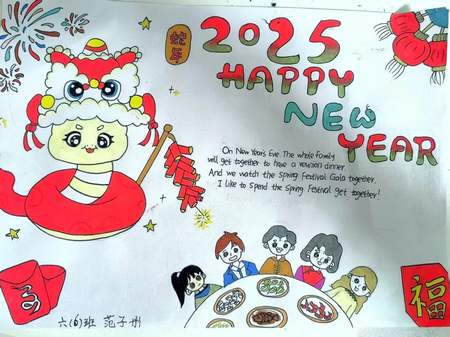 2025
蛇年
HAPPY
NEW
YEAR
On New Year's Eve. The whole family
will get together to have a reunion dinner.
And we watch the Spring Festival Gala together.
I like to spend the Spring Festival get together!
福
六(6)班 范子州